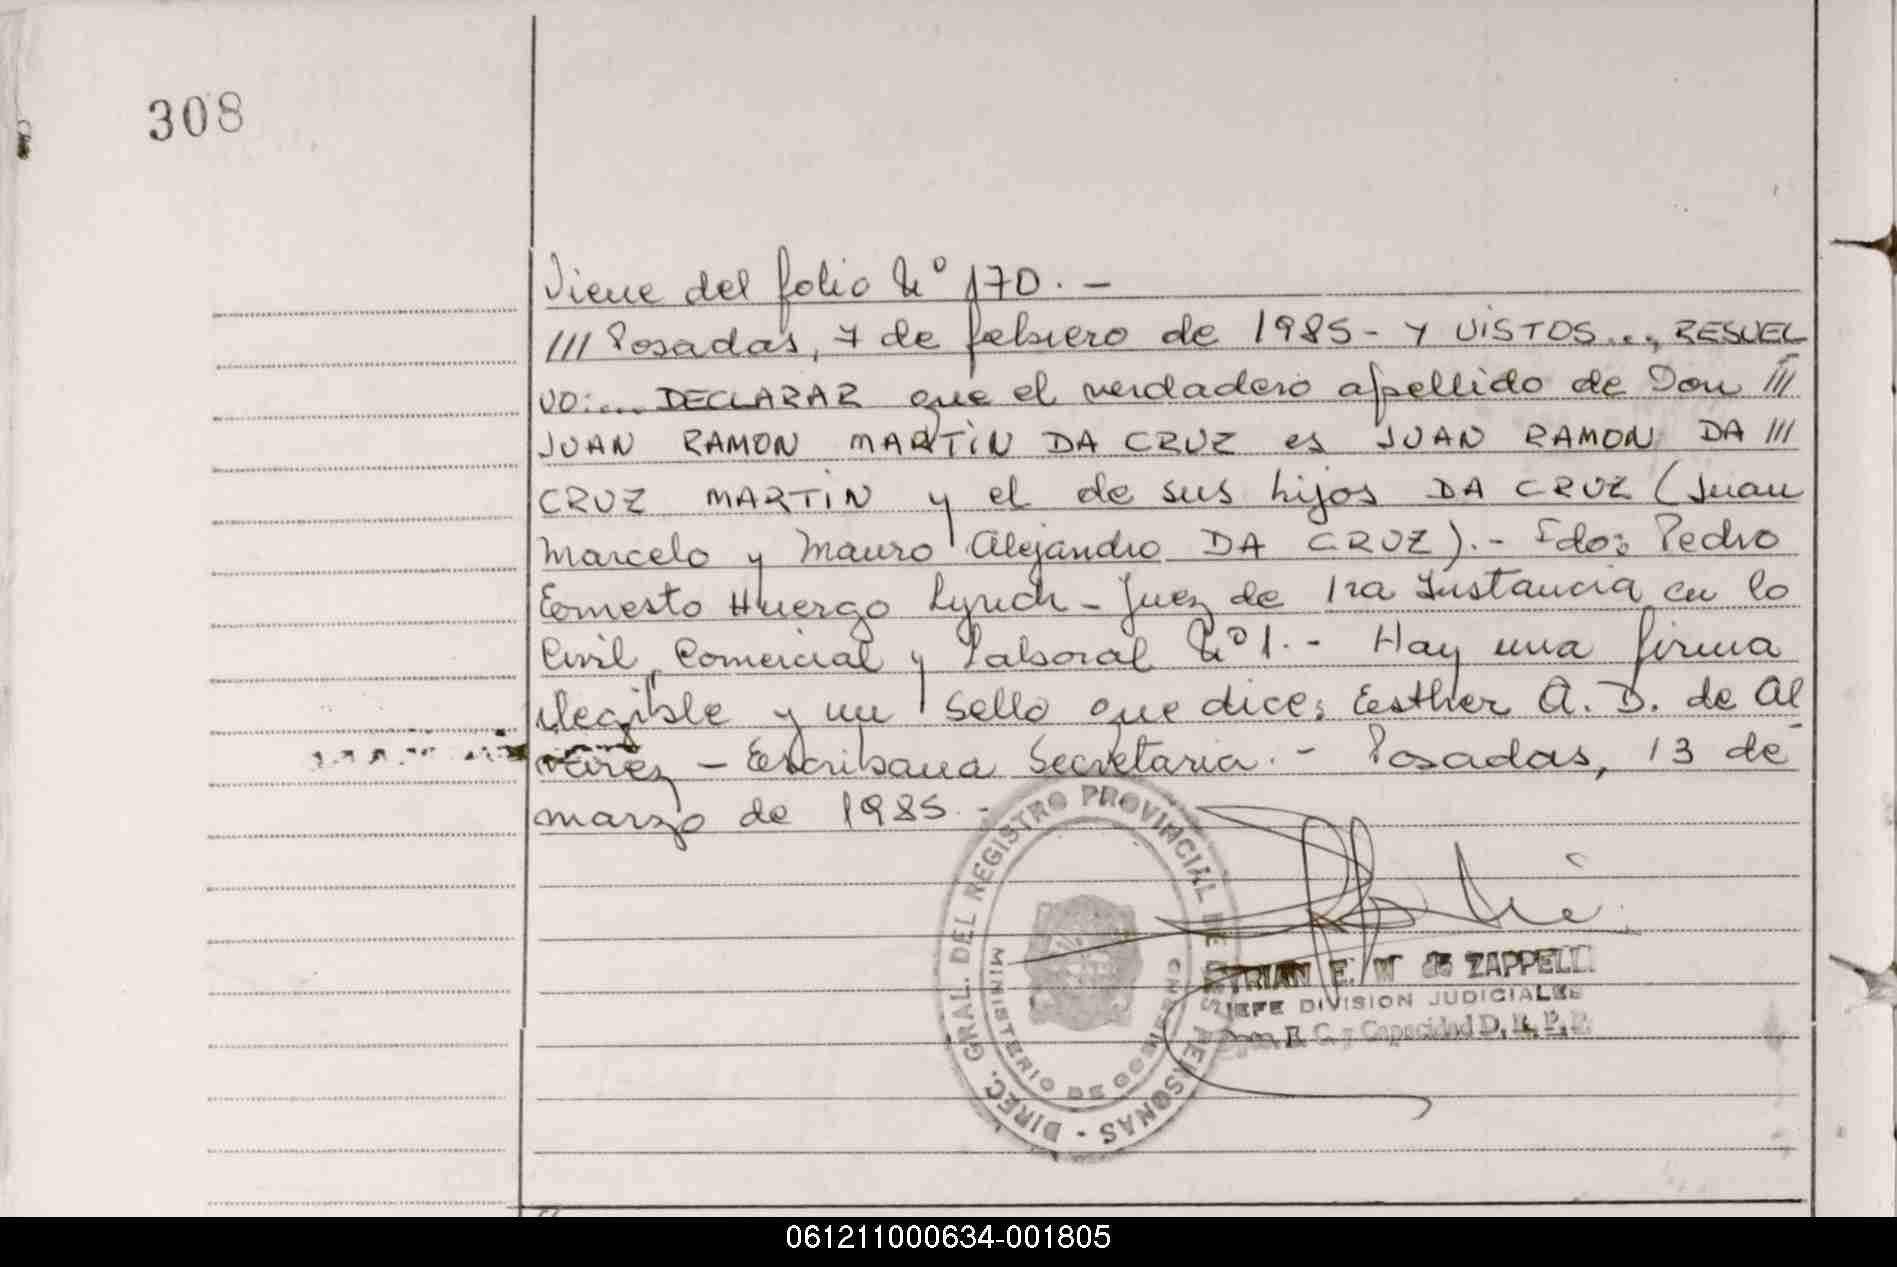 308
Viene del folio Nº 170. -
/// Posadas, 7 de febrero de 1985 - Y VISTOS..., RESUEL
VO:... DECLARAR que el verdadero apellido de Don ///
JUAN RAMON MARTIN DA CRUZ es JUAN RAMON DA ///
CRUZ MARTIN y el de sus hijos DA CRUZ (Juan
Marcelo y Mauro Alejandro DA CRUZ). - Fdo: Pedro
Ernesto Huergo Lynch - Juez de 1ra Instancia en lo
Civil, Comercial y Laboral Nº 1. - Hay una firma
ilegible y un sello que dice: Esther A. D. de Al
varez - Escribana Secretaria. - Posadas, 13 de
marzo de 1985. -
DIREC. GRAL. DEL REGISTRO PROVINCIAL DE LAS PERSONAS -
MINISTERIO DE GOBIERNO
E. W de ZAPPELLI
JEFE DIVISION JUDICIALES
R. C. y Capacidad D. R. P. P.
061211000634-001805